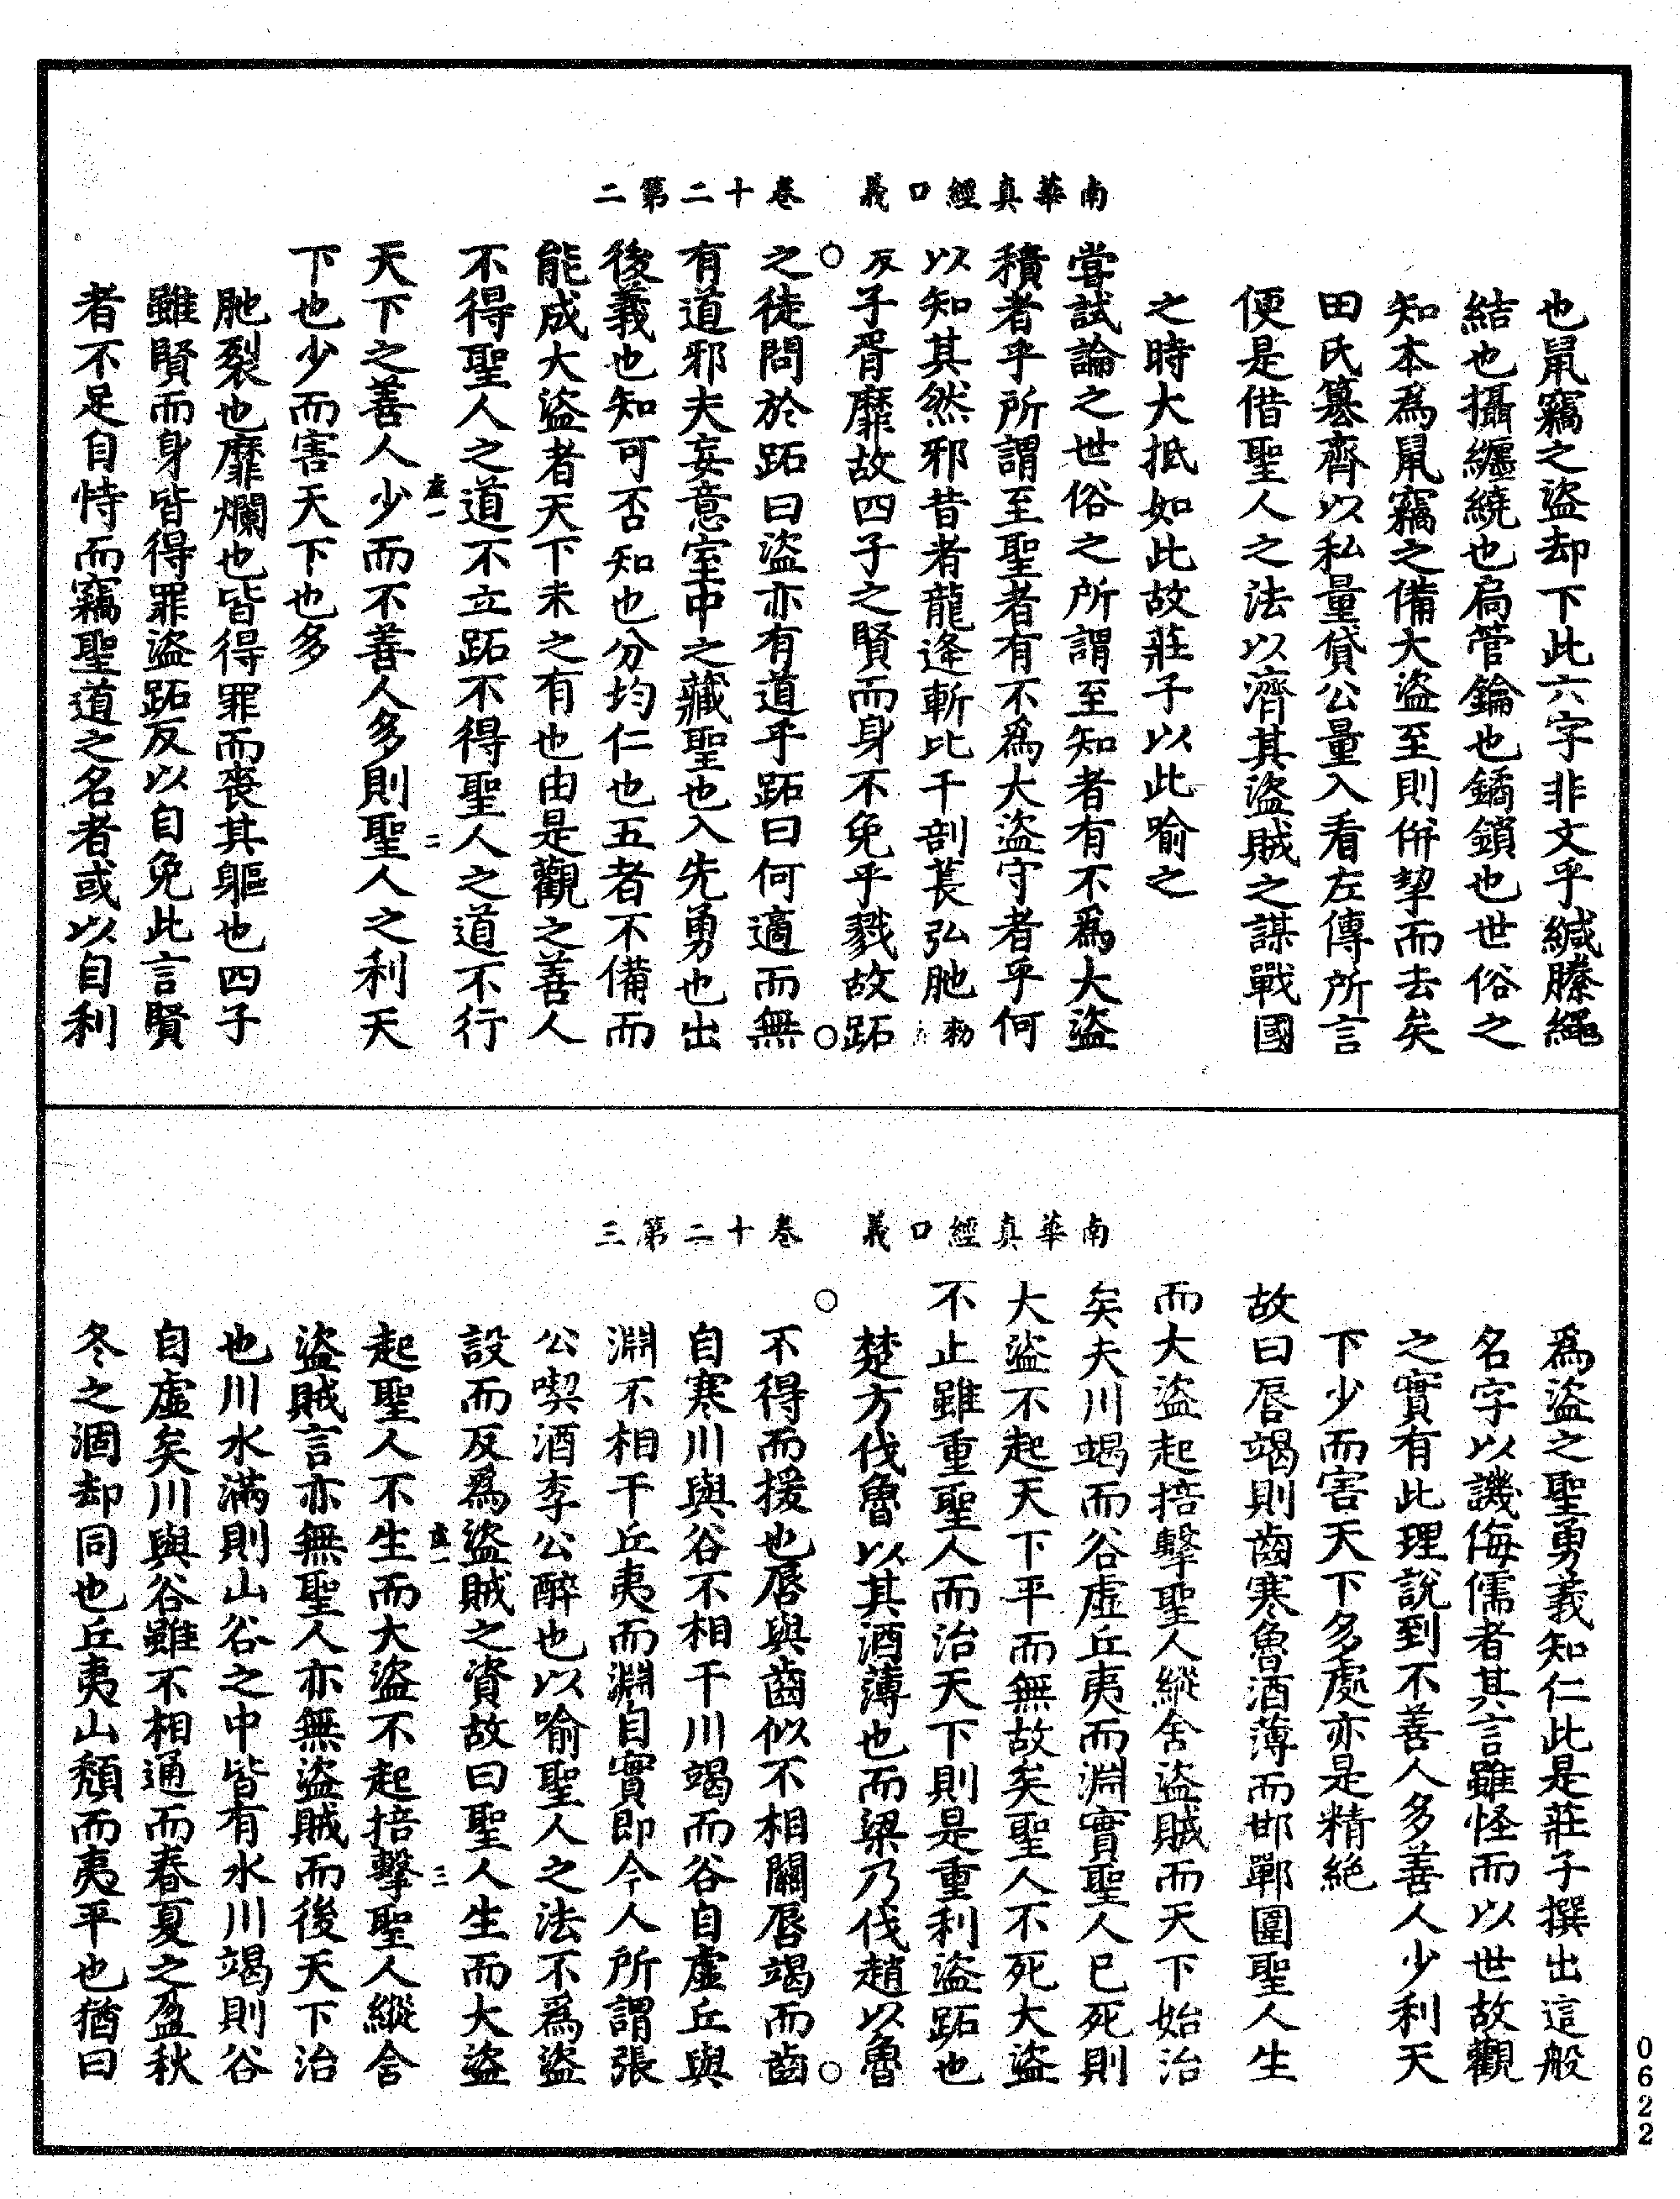 南華真經口義　卷十二第二
也鼠竊之盜却下此六字非文乎緘縢繩
結也攝纏繞也扃管鑰也鐍鎖也世俗之
知本為鼠竊之備大盜至則併挈而去矣
田氏簒齊以私量貸公量入看左傳所言
便是借聖人之法以濟其盜賊之謀戰國
之時大抵如此故莊子以此喻之
嘗試論之世俗之所謂至知者有不爲大盜
積者乎所謂至聖者有不爲大盜守者乎何
以知其然邪昔者龍逄斬比干剖萇弘胣勑
反子胥靡故四子之賢而身不免乎戮故跖
之徒問於跖曰盜亦有道乎跖曰何適而無
有道邪夫妄意室中之藏聖也入先勇也出
後義也知可否知也分均仁也五者不備而
能成大盜者天下未之有也由是觀之善人
不得聖人之道不立跖不得聖人之道不行
虛一　二
天下之善人少而不善人多則聖人之利天
下也少而害天下也多
胣裂也靡爛也皆得罪而喪其軀也四子
雖賢而身皆得罪盜跖反以自免此言賢
者不足自恃而竊聖道之名者或以自利
南華真經口義　卷十二第三
爲盜之聖勇義知仁此是莊子撰出這般
名字以譏侮儒者其言雖怪而以世故觀
之實有此理說到不善人多善人少利天
下少而害天下多處亦是精絕
故曰唇竭則齒寒魯酒薄而邯鄲圍聖人生
而大盜起掊擊聖人縱舍盜賊而天下始治
矣夫川竭而谷虛丘夷而淵實聖人已死則
大盜不起天下平而無故矣聖人不死大盜
不止雖重聖人而治天下則是重利盜跖也
楚方伐魯以其酒薄也而梁乃伐趙以魯
不得而援也唇與齒似不相關唇竭而齒
自寒川與谷不相干川竭而谷自虛丘與
淵不相干丘夷而淵自實即今人所謂張
公喫酒李公醉也以喻聖人之法不爲盜
設而反爲盜賊之資故曰聖人生而大盜
虛一　三
起聖人不生而大盜不起掊擊聖人縱舍
盜賊言亦無聖人亦無盜賊而後天下治
也川水滿則山谷之中皆有水川竭則谷
自虛矣川與谷雖不相通而春夏之盈秋
冬之涸却同也丘夷山頹而夷平也猶曰
0622